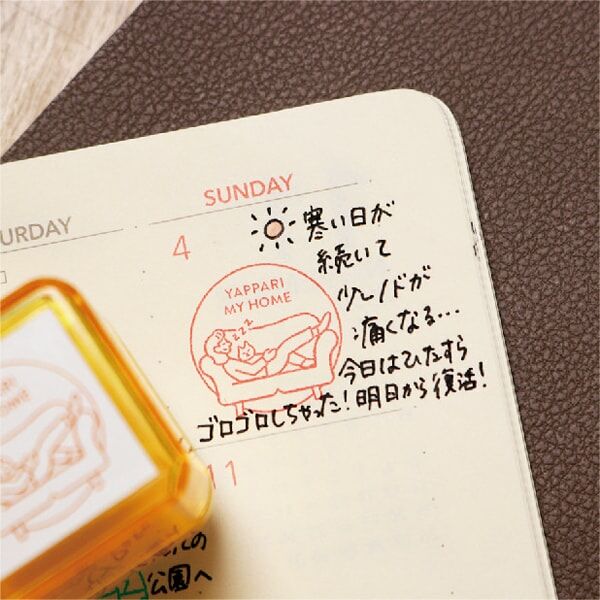 SUNDAY
URDAY
4
寒い日が
続いて
少しノドが
痛くなる…
今日はひたすら
ゴロゴロしちゃった!明日から復活!
YAPPARI
MY HOME
zzz
11
の
公園へ